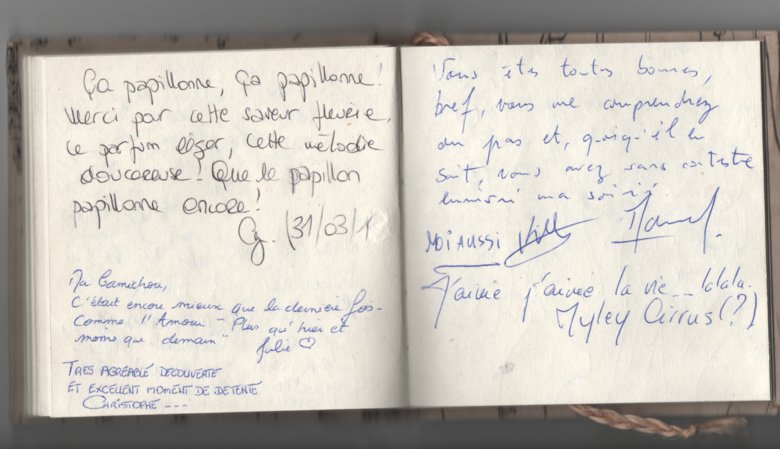 Ça papillonne, ça papillonne!
Merci par cette saveur fleurie,
ce parfum léger, cette mélodie
doucereuse! Que le papillon
papillonne encore!
Cg. (31/03/1
Ma Camichou,
C'était encore mieux que la dernière fois-
comme l'Amour - "Plus qu'hier et
moins que demain"
Julie ♡
TRES AGREABLE DECOUVERTE
ET EXCELLENT MOMENT DE DETENTE
CHRISTOPHE ---
Vous êtes toutes bonnes,
bref, vous me comprendrez
ou pas et, quoiqu'il en
soit, vous avez sans conteste
ma soirée.
MOI AUSSI
J'aime j'aime la vie... lalala.
Myley Cirrus (?)